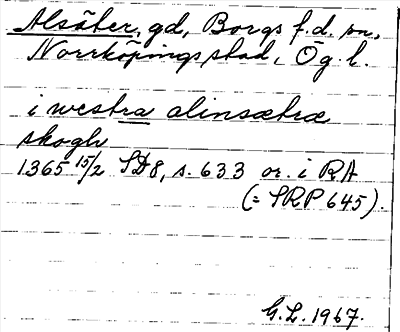 Alsäter, gd, Borgs f.d. sn,
Norrköpings stad, Ög. l.
i westra alinsætræ
skogh
1365 15/2 SD8, s. 633 or. i RA
(= SRP 645).
G.L. 1967.